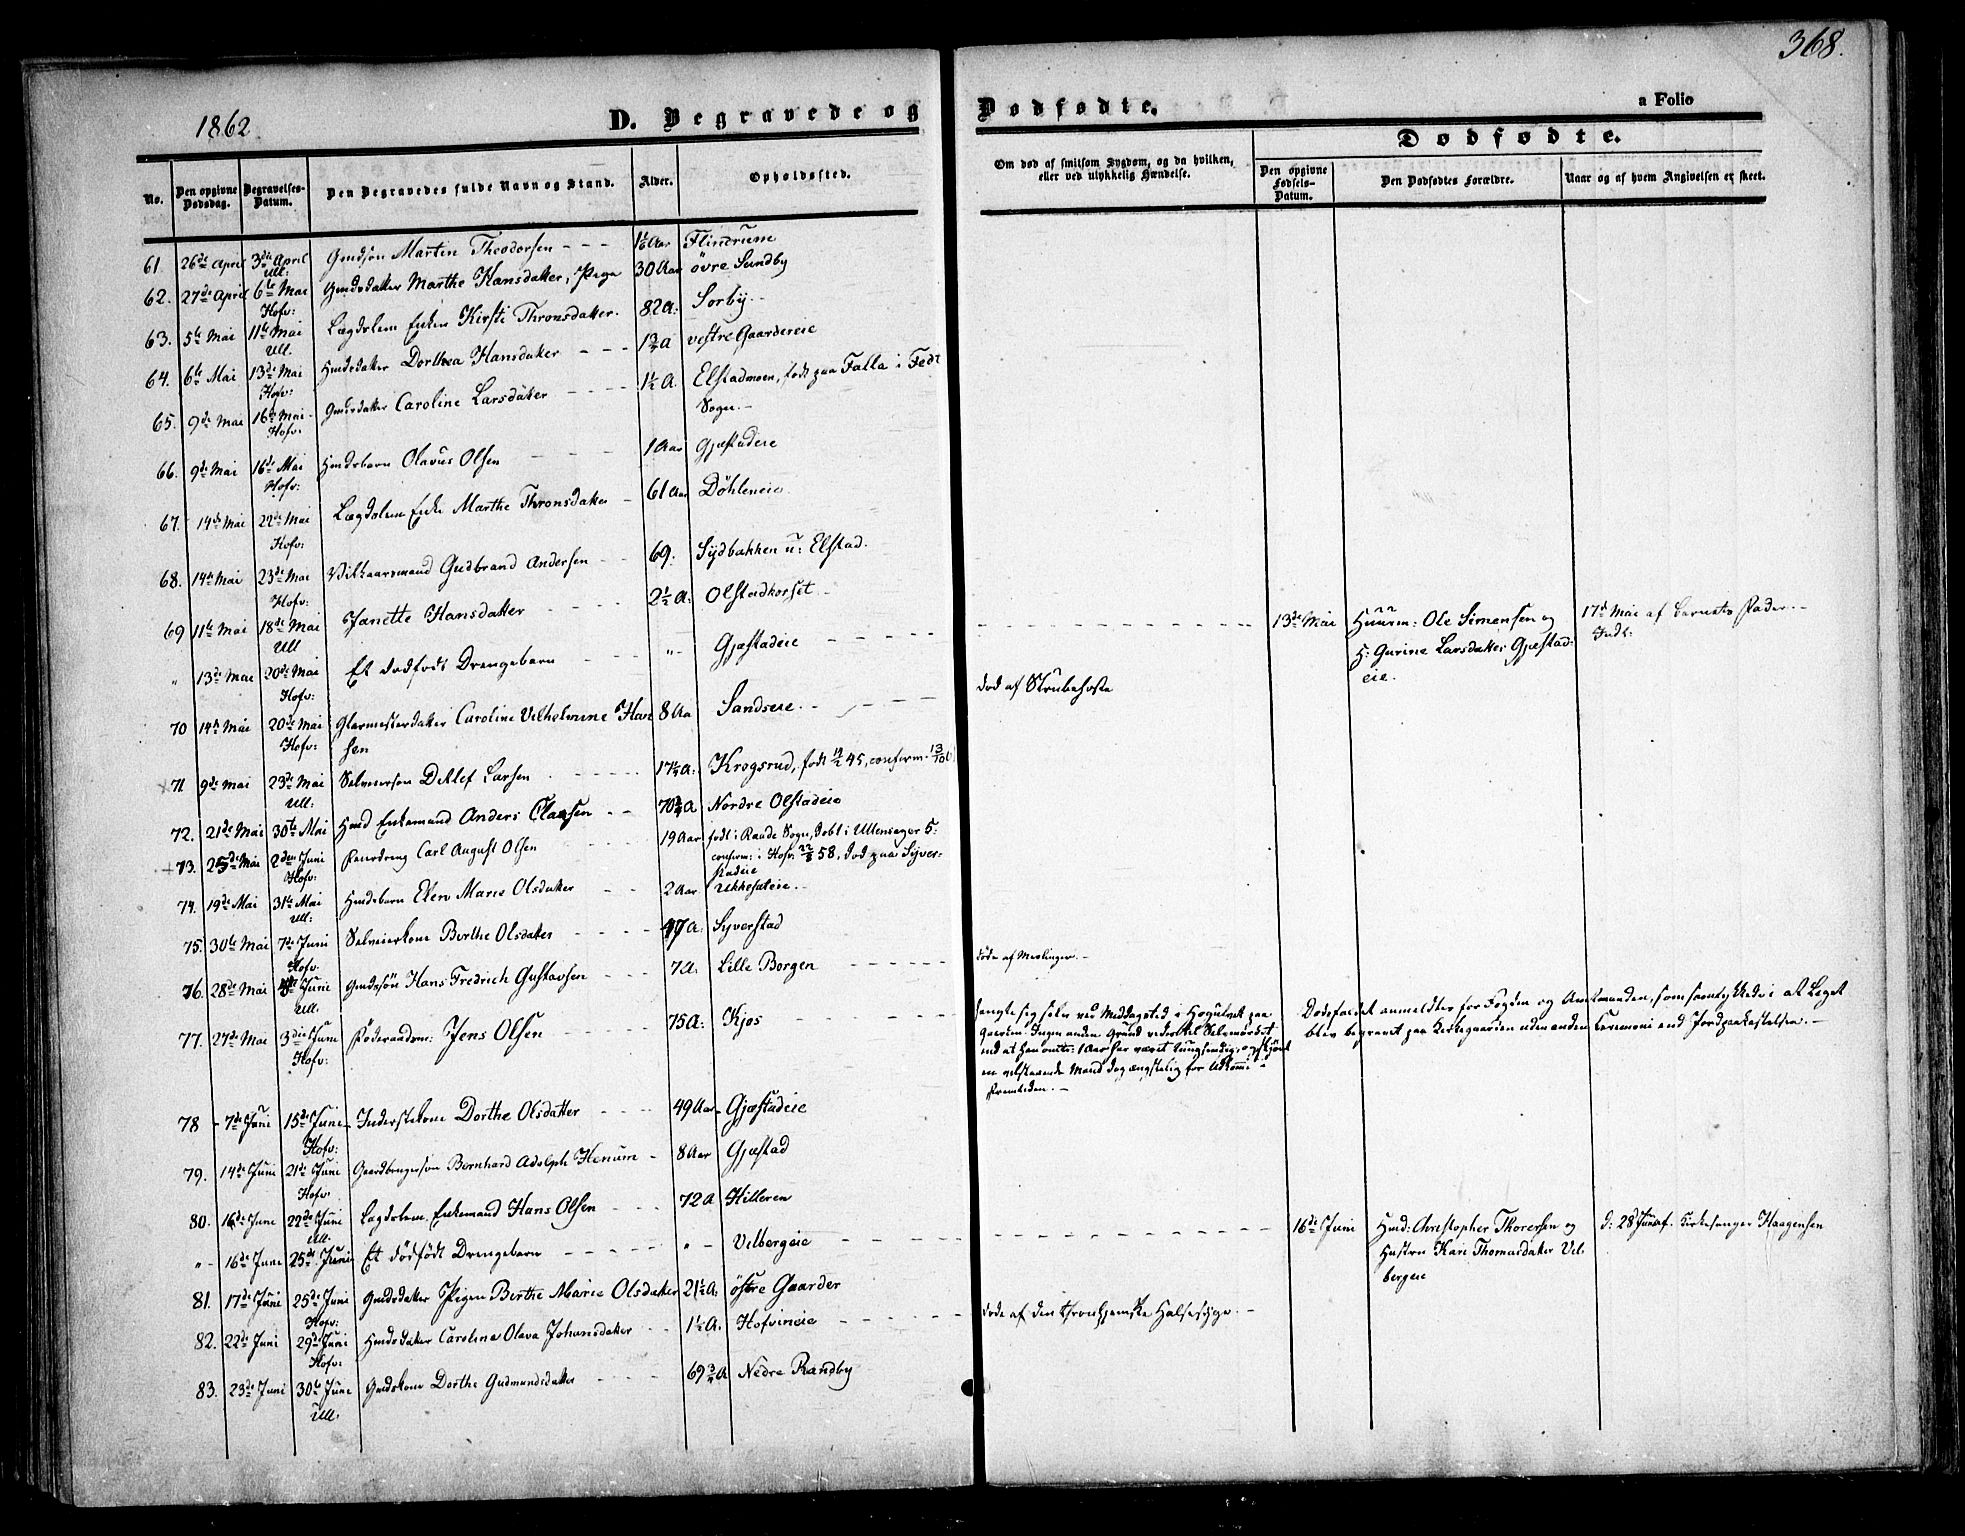 368.
1862
D. Begravede og Dødfødte.
a Folio
No.
Den opgivne Dødsdag.
Begravelses-Datum.
Den Begravedes fulde Navn og Stand.
Alder.
Opholdssted.
Om død af smitsom Sygdom, og da hvilken,
eller ved ulykkelig Hændelse.
Dødfødte.
Den opgivne Fødsels-Datum.
Den Dødfødtes Forældre.
Naar og af hvem Angivelsen er skeet.
61. 26de April 3die April Ull: Gmdsøn Martin Theodorsen - - - Aar Flindrum
62. 27de April 6te Mai Hofv: Gmdsdatter Marthe Hansdatter, Pige 30 Aar øvre Sundby
63. 5te Mai 11te Mai Ull. Lægdslem Enken Kirsti Thronsdatter. 82 A: Sørby
64. 6te Mai 13de Mai Hofv: Hmdsdatter Dorthea Hansdatter - - - A vestre Gaardereie
65. 9de Mai 16de Mai Hofv: Gmdsdatter Caroline Larsdatter - - - 1½ A. Elstadmoen, født paa Falla i Fedt
Sogn.
66. 9de Mai 16de Mai Hofv: Hmdsbarn Olavus Olsen - - - 1 Aar Gjæstadeie
67. 14de Mai 22de Mai Hofv: Lægdslem Enke Marthe Thronsdatter - 61 Aar Døhleneie
68. 14de Mai 23de Mai Hofv: Vilkaarsmand Gudbrand Andersen - - 69. Sydbakken u: Elstad.
69 11te Mai 18de Mai Ull Janette Hansdatter - - - 2½ A: Olstadkorset
" 13de Mai 20de Mai Hofv: Et dødfødt Drengebarn - - - "- Gjæstadeie - - - 13de Mai Huusm: Ole Simensen og 17d Mai af Barnets Fader.
H: Gurine Larsdatter Gjæstad-
eie.
70 14de Mai 20de Mai Hofv: Glarmesterdatter Caroline Vilhelmine Han 8 Aa Sandseie - - - død af Strubehoste
sen
71 9de Mai 23de Mai Ull: Selveiersøn Ditlef Larsen - - - 17¼ A: Krogsrud, født 12/2 45, conferm. 13/10
72. 21de Mai 30te Mai Hmd Enkemand Anders Clausen - - 70¾ A Nordre Olstadeie
73. 25de Mai 2den Juni Hofv: Carl August Olsen 19 Aar født i Raade Sogn, døbt i Ullensager 5:
conferm: i Hofv. 22/8 58, død paa Syver-
stadeie
74. 19de Mai 31te Mai Ull: Hmdsbarn Elen Marie Olsdatter - - 2 Aar Ukkestadeie.
75. 30te Mai 7de Juni Hofv. Selveierkone Berthe Olsdatter - - - 47 A: Syverstad
76. 28de Mai Juni Ull. Gmdssøn Hans Fredrich Gustavsen - - 7 A: Lille Borgen - - - døde af Meslinger.
77. 27de Mai 3die Juni Hofv: Føderaadsm: Jens Olsen - - - 75 A: Kjos
hengte sig selv ved Middagstid i paa
Gaarden. Ingen anden Grund vides til Selvmordet
end at han omtr: 1 Aar har været tungsindig, og skjønt
en velstaaende Mand dog ængstelig for Udkomme i
Fremtiden.
Dødsfaldet anmeldtes for Fogden og Amtmanden, som samtykkede i at Liget
blev begravet paa Kirkegaarden uden anden Ceremoni end Jordpaakastelsen.
78 7de Juni 15de Juni Hofv: Inderstekone Dorthe Olsdatter - - - 49 Aar Gjæstadeie
79. 14de Juni 21de Juni Hofv. Gaardbrugersøn Bernhard Adolph Henum - 8 Aar Gjæstad
80. 16de Juni 22de Juni Ull. Lægdslem, Enkemand Hans Olsen - - - 72 A Hilleren
" - 16de Juni 25de Juni Et dødfødt Drengebarn - - - " - Vilbergeie - - - 16de Juni Hmd: Christopher Thorersen og d: 28 Juni af Kirkesanger Haagensen
Hustru Kari Thomasdatter Vil
bergeie
81. 17de Juni 25de Juni Hofv: Gmdsdatter Pigen Berthe Marie Olsdatter 21½ A. østre Gaarder
82. 22de Juni 29de Juni Hofv: Hmdsdatter Carolina Olava Johansdatter - - 1½ A. Hofvineie - - - døde af den thronhjemske Halsesyge.
83. 23de Juni 30te Juni Ull. Gmdskone Dorthe Gudmundsdatter - - - 69¾ A Nedre Randby